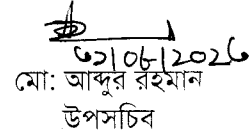 ০১/০৪/২০২৬
মো: আব্দুর রহমান
উপসচিব